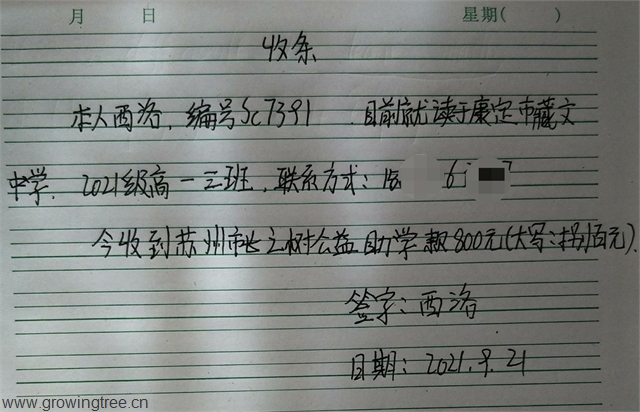 月 日 星期( )
收条
本人西洛,编号Sc7391 .目前就读于康定市藏文
中学.2021级高一三班,联系方式:
今收到苏州市长之树公益助学款800元(大写:捌佰元).
签字:西洛
日期:2021.9.21
www.growingtree.cn